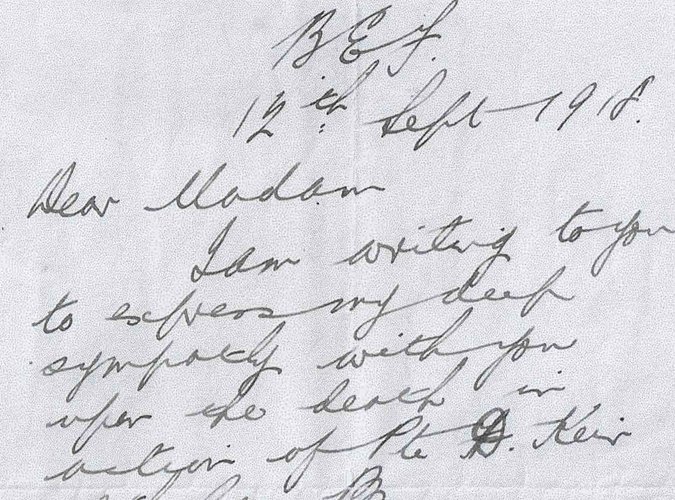 B E F.
12th Sept 1918.
Dear Madam
I am writing to you
to express my deep
sympathy with you
upon the death in
action of Pte D. Keir